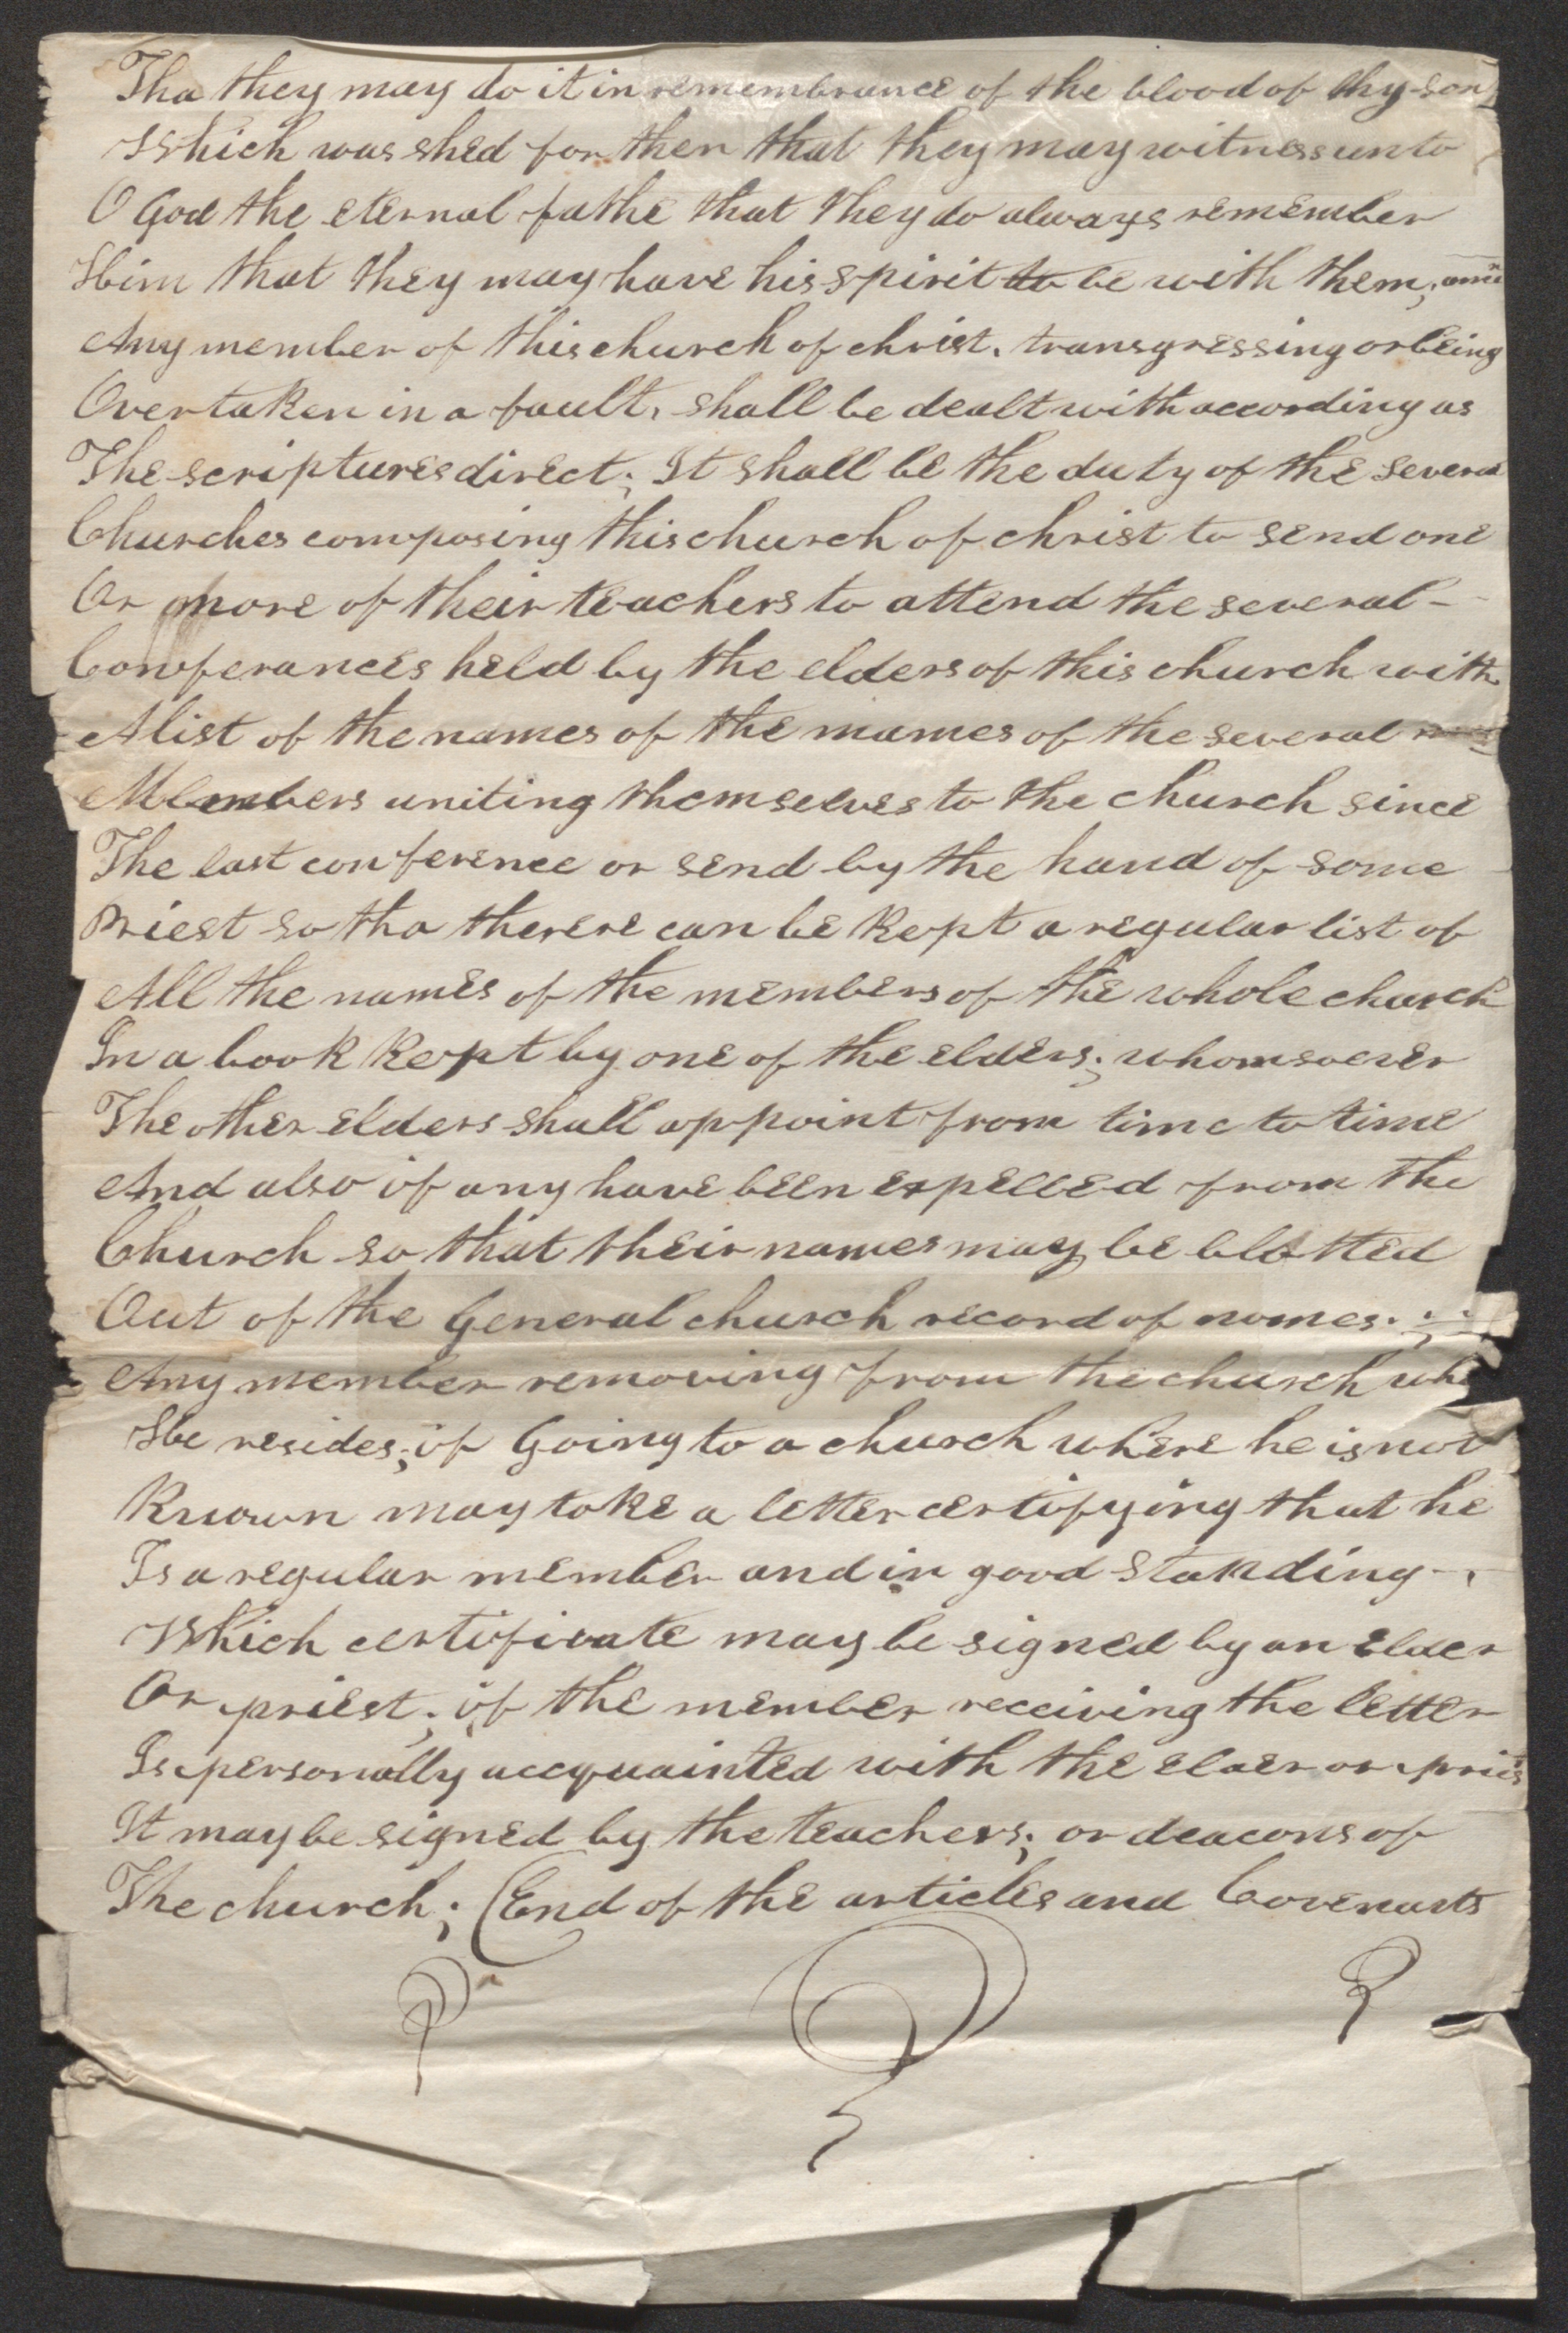 Tha they may do it in remembrance of the blood of thy son
Which was shed for then that they may witness unto
O God the eternal fathe that they do always remember
Him that they may have his spirit to be with them; amü
Any member of this church of christ. transgressing or being
Overtaken in a fault, shall be dealt with according as
The scriptures direct; It shall be the duty of the several
Churches composing this church of christ to send one
Or more of their teachers to attend the several -
Conferances held by the elders of this church with
A list of the names of the mames of the several
Members uniting themselves to the church since
The last conference or send by the hand of some
Priest so tha therere can be kept a regular list of
All the names of the members of the whole church
In a book kept by one of the elders; whomsoever
The other elders shall appoint from time to time
And also if any have been expelled from the
Church so that their names may be blotted
Out of the General church record of nomes. ;
Any member removing from the church whe
He resides; if Going to a church where he is not
Known may take a letter certifying that he
Is a regular member and in good standing -.
Which certificate may be signed by an Elder
Or priest; if the member receiving the letter
Is personally accquainted with the elder or pries
It may be signed by the teachers; or deacons of
The church; (End of the articles and Covenants